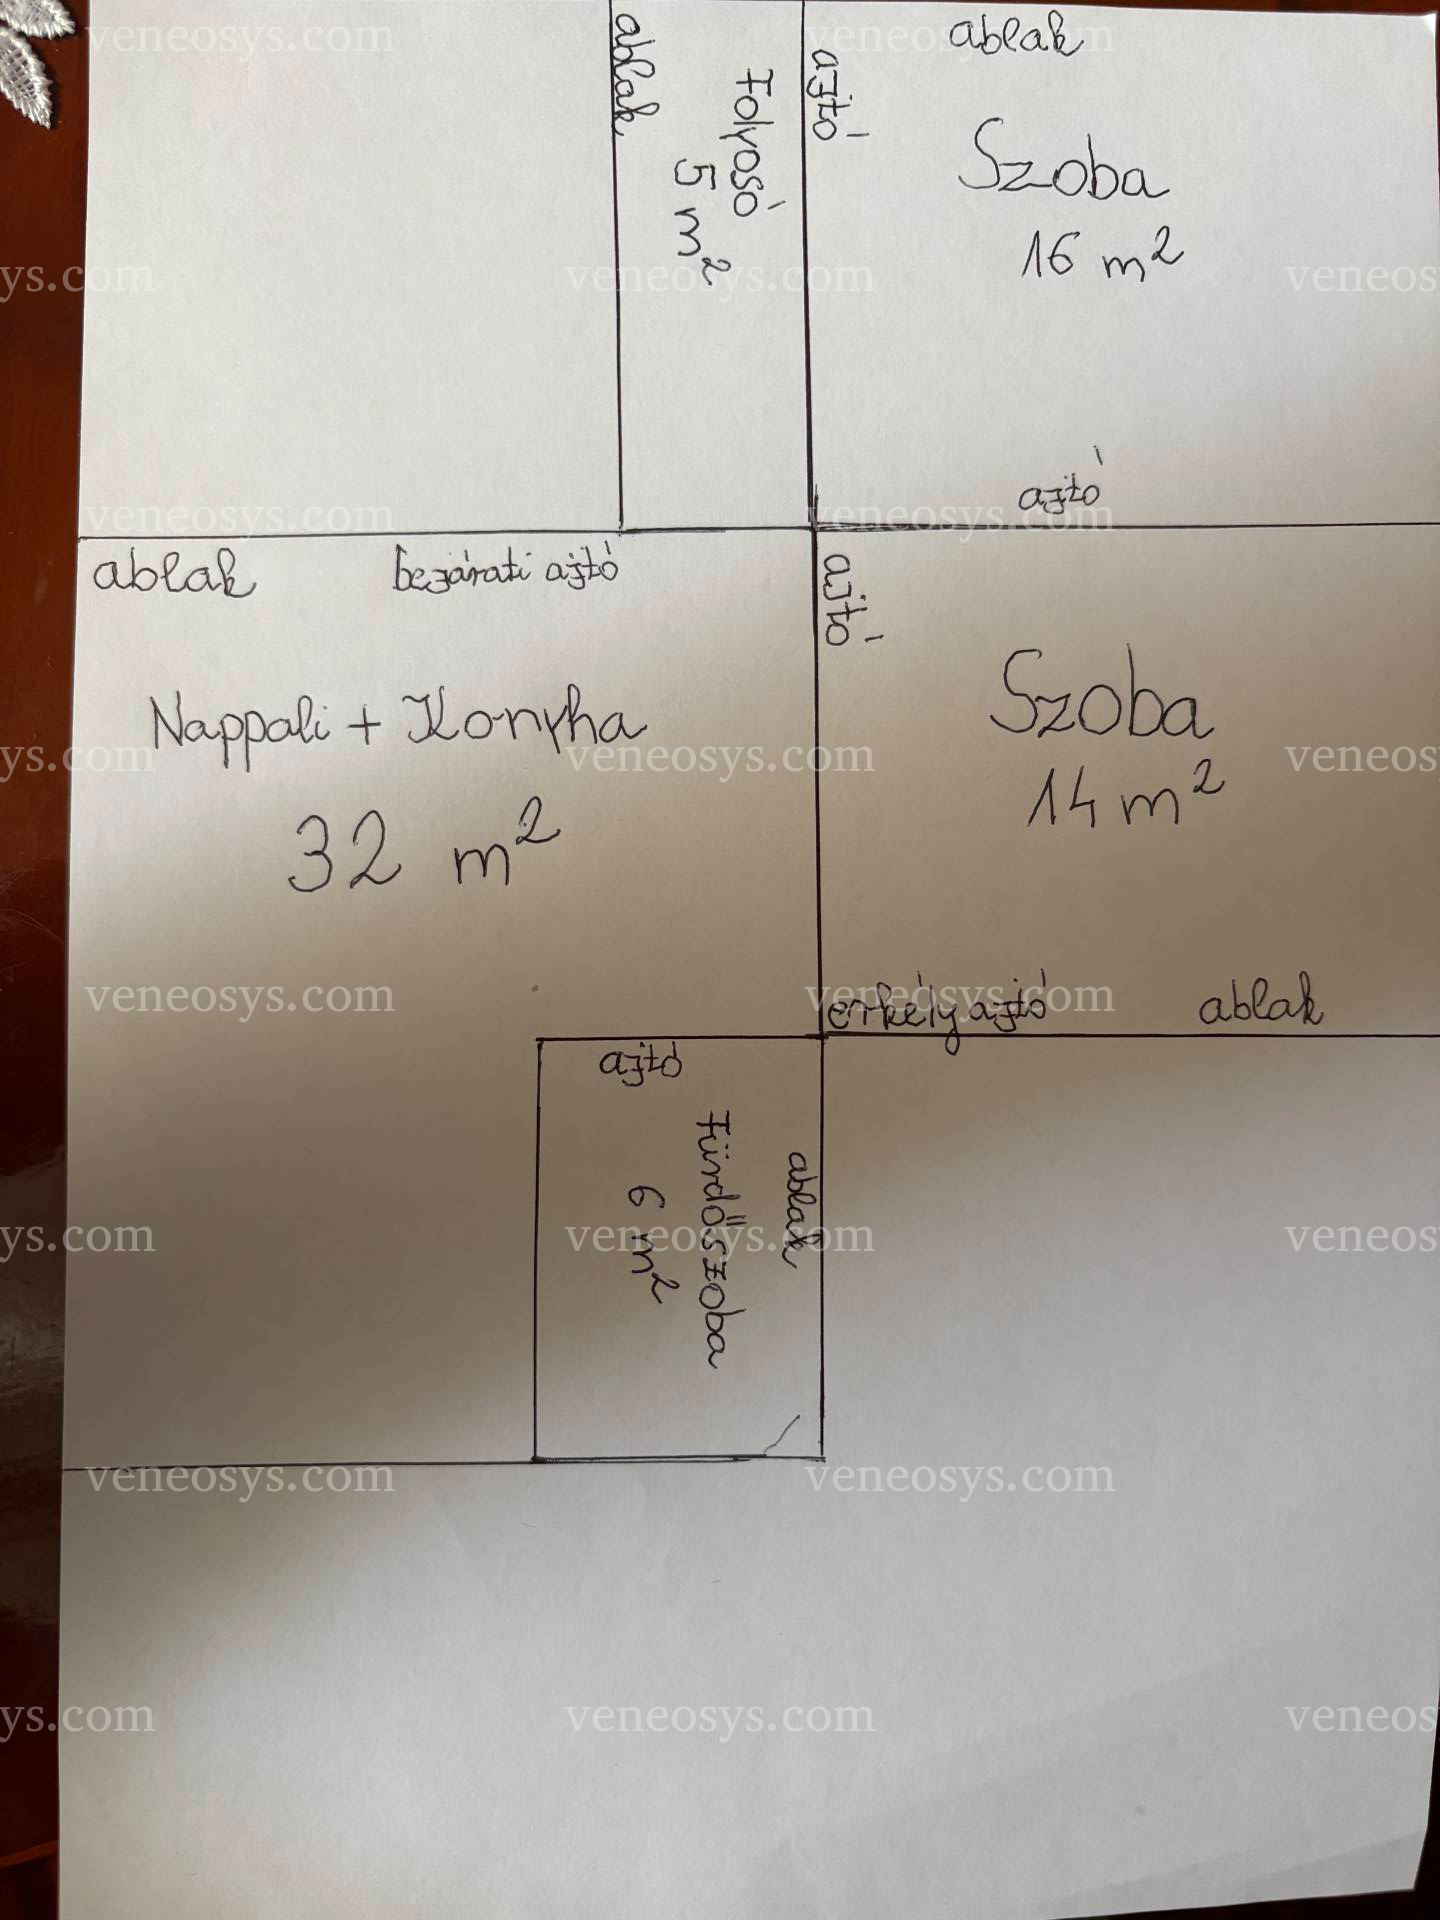 ablak
ablak
ajtó
Folyosó
5 m²
Szoba
16 m²
ajtó
ablak
bejárati ajtó
ajtó
Nappali + Konyha
32 m²
Szoba
14 m²
erkély ajtó
ablak
ajtó
ablak
Fürdőszoba
6 m²
veneosys.com